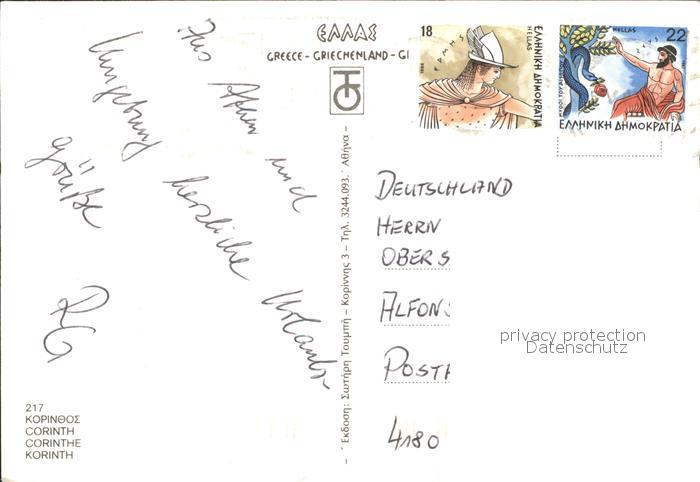 ΕΛΛΑΣ
GREECE - GRIECHENLAND - GR
Aus Athen und
Umgebung herzliche Urlaubs
grüße
RG
217
ΚΟΡΙΝΘΟΣ
CORINTH
CORINTHE
KORINTH
Ἔκδοση: Σωτήρη Τουμπή – Κορίννης 3 – Τηλ. 3244.093. Ἀθήνα –
18
ΓΑΜΗΣ
HELLAS
ΕΛΛΗΝΙΚΗ ΔΗΜΟΚΡΑΤΙΑ
HELLAS
22
ΕΛΛΗΝΙΚΗ ΔΗΜΟΚΡΑΤΙΑ
DEUTSCHLAND
HERRN
OBERS
ALFONS
POSTH
4180
privacy protection
Datenschutz